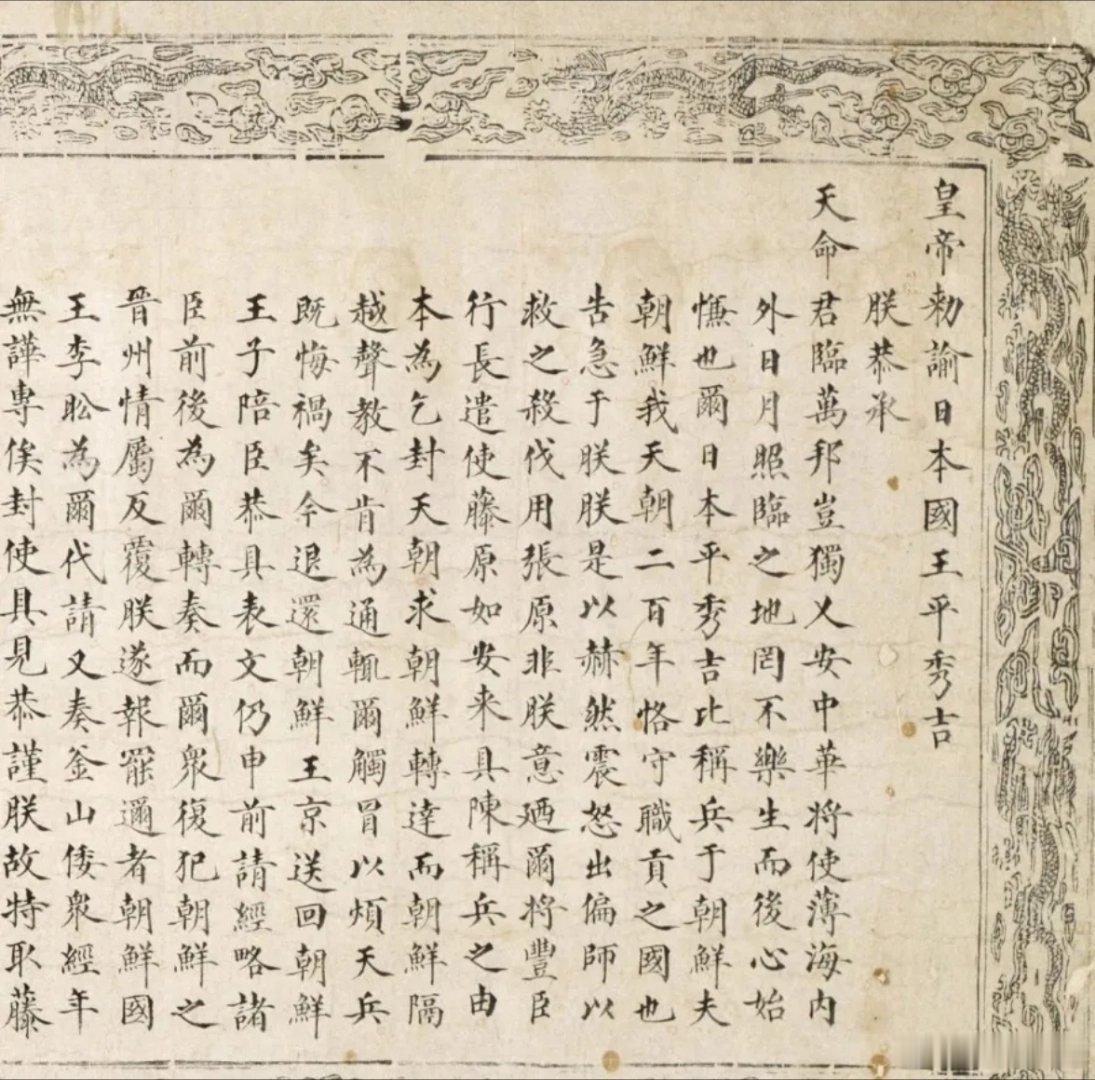 皇帝勅諭日本國王平秀吉
朕恭承
天命君臨萬邦豈獨乂安中華將使薄海內
外日月照臨之地罔不樂生而後心始
慊也爾日本平秀吉比稱兵于朝鮮夫
朝鮮我天朝二百年恪守職貢之國也
告急于朕朕是以赫然震怒出偏師以
救之殺伐用張原非朕意廼爾將豐臣
行長遣使藤原如安来具陳稱兵之由
本為乞封天朝求朝鮮轉達而朝鮮隔
越聲教不肯為通輒爾觸冒以煩天兵
既悔禍矣今退還朝鮮王京送回朝鮮
王子陪臣恭具表文仍申前請經略諸
臣前後為爾轉奏而爾衆復犯朝鮮之
晉州情屬反覆朕遂報罷邇者朝鮮國
王李昖為爾代請又奏釜山倭衆經年
無譁專俟封使具見恭謹朕故特取藤